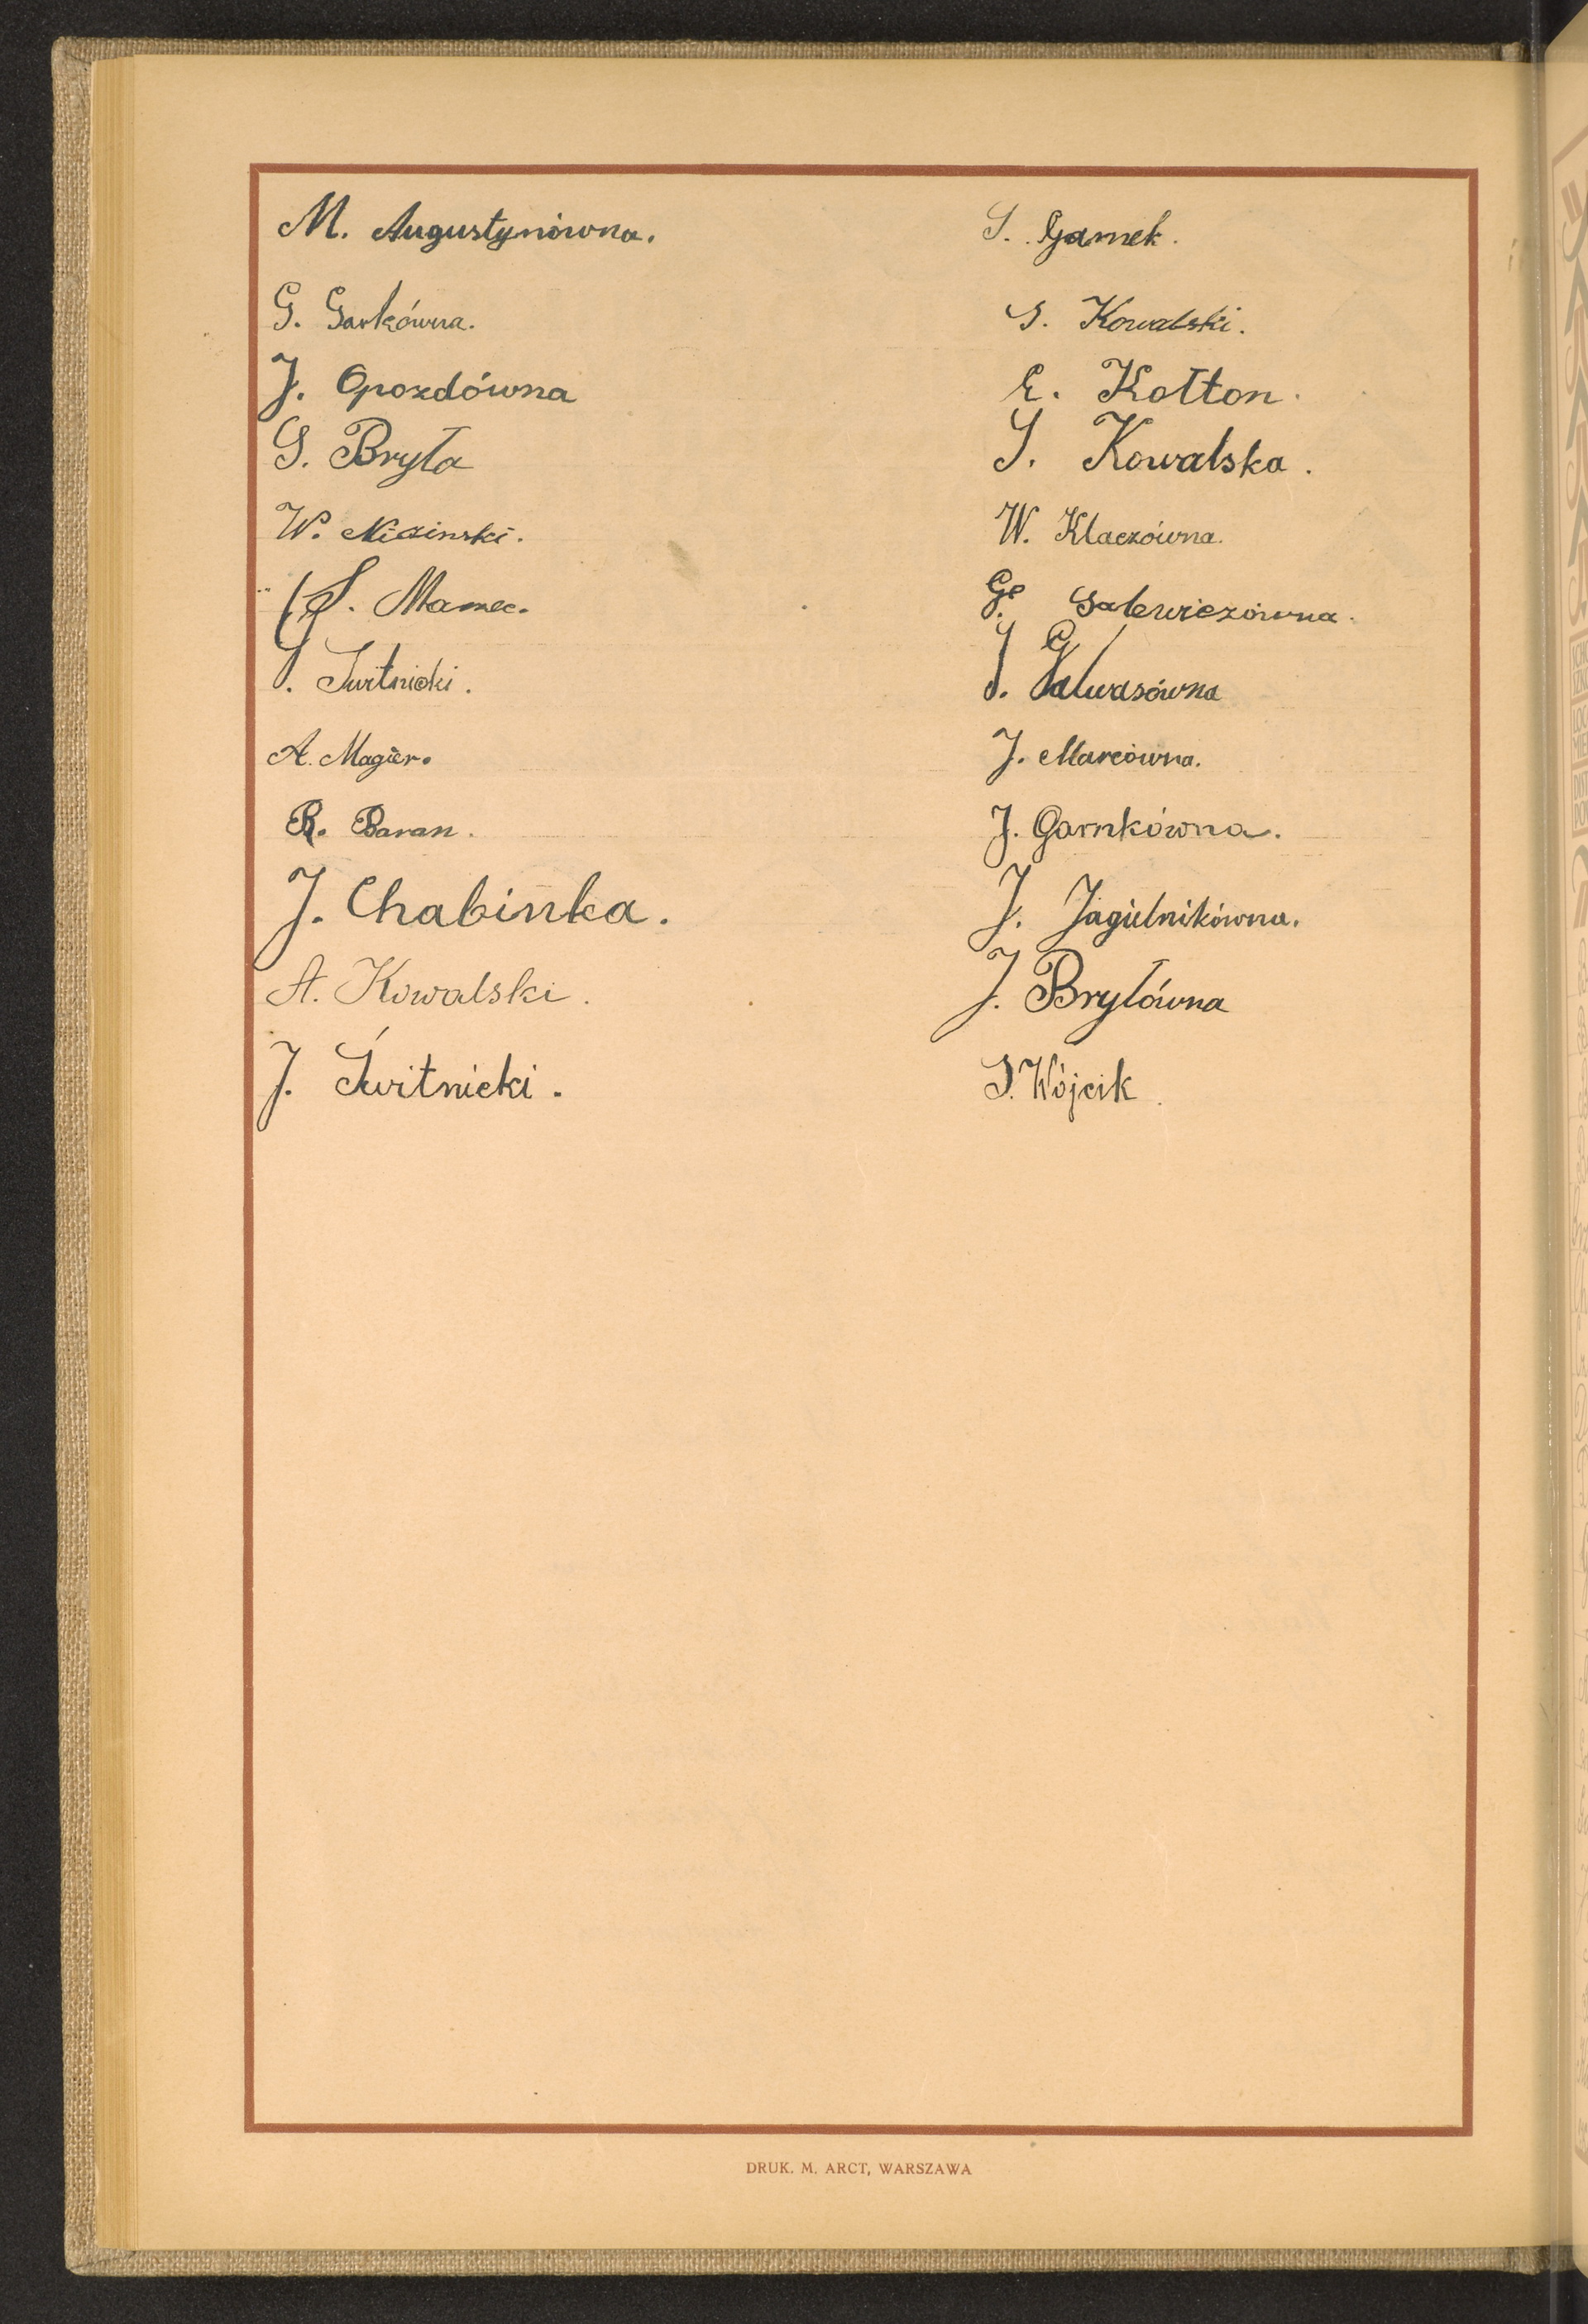 M. Augustynówna.
G. Garkówna.
J. Opozdówna
G. Bryła
W. Nizinski.
S. Mamec.
S. Świtnicki.
A. Magier.
R. Baran.
J. Chabinka.
A. Kowalski.
J. Świtnicki.
S. Gamek.
S. Kowalski.
E. Kołton.
S. Kowalska.
W. Klaczówna.
G. Galewiczówna.
S. Galwasówna
J. Marcówna.
J. Garnkówna.
J. Jagielnikówna.
J. Bryłówna
S. Wójcik.
DRUK. M. ARCT, WARSZAWA